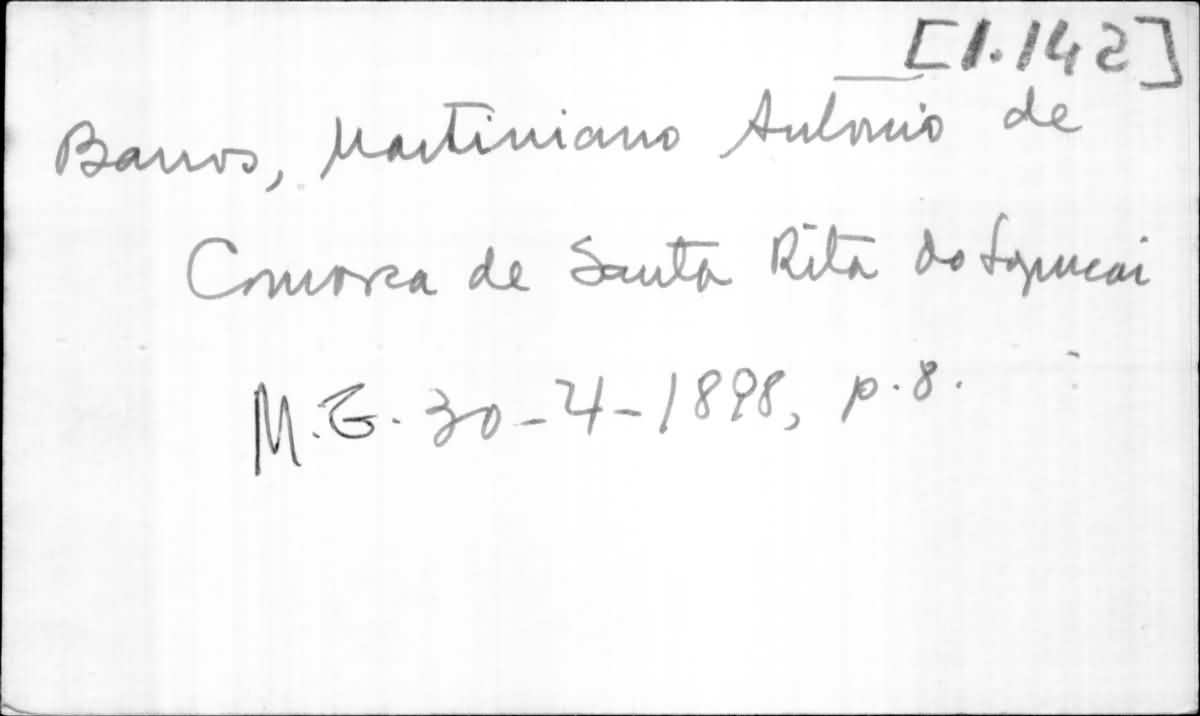 [1.142]
Barros, Martiniano Antonio de
Comarca de Santa Rita do Sapucai
M.G. 30-4-1898, p. 8.